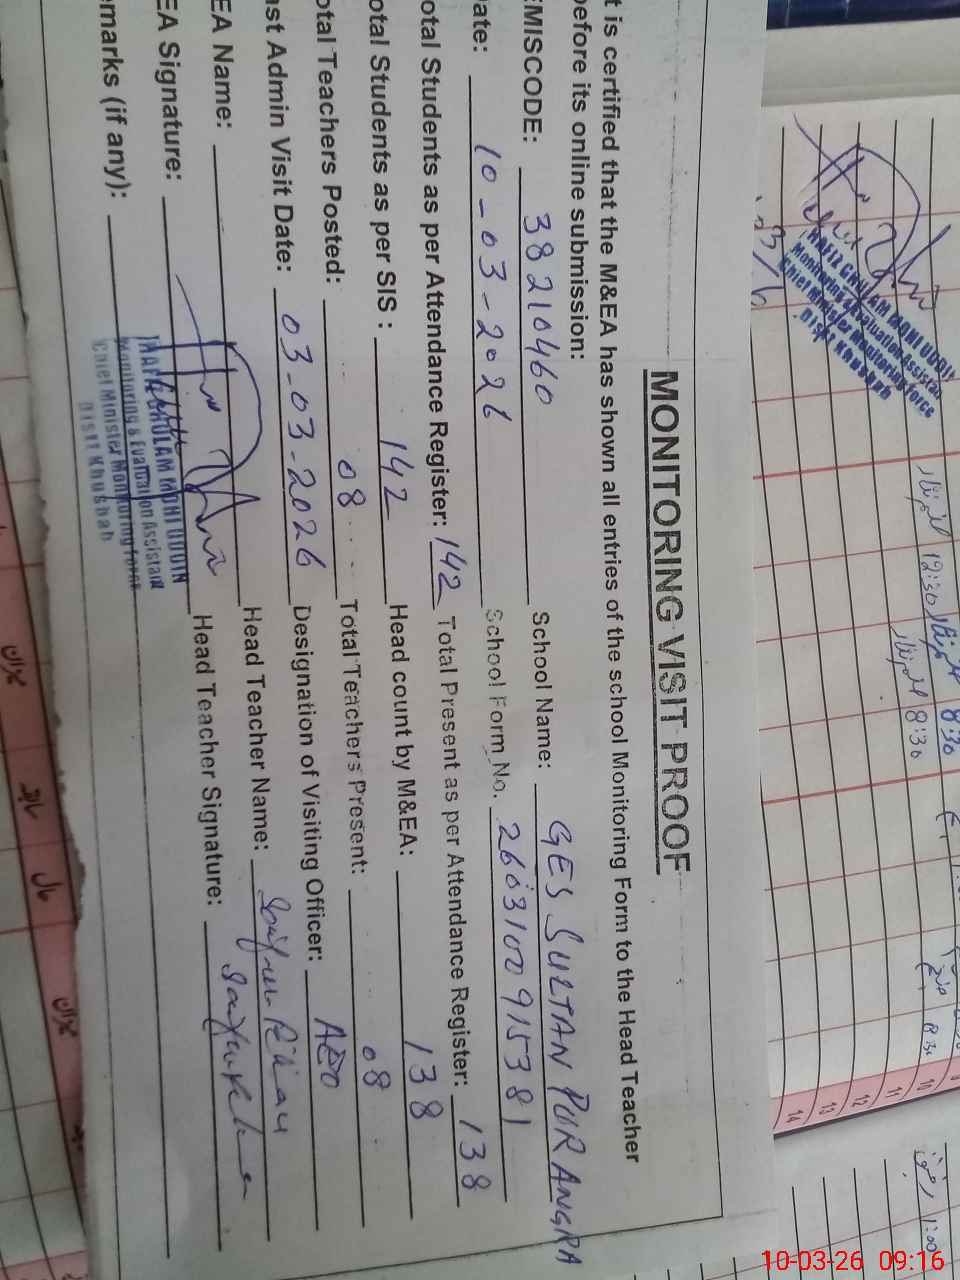 MONITORING VISIT PROOF
t is certified that the M&EA has shown all entries of the school Monitoring Form to the Head Teacher
before its online submission:
EMISCODE: 38210460 School Name: GES SULTAN PUR ANGRA
Date: 10-03-2026 School Form No. 2603100915381
otal Students as per Attendance Register: 142 Total Present as per Attendance Register: 138
otal Students as per SIS : 142 Head count by M&EA: 138
otal Teachers Posted: 08 Total Teachers Present: 08
ast Admin Visit Date: 03-03-2026 Designation of Visiting Officer: AEO
EA Name: Head Teacher Name:
EA Signature: Head Teacher Signature:
emarks (if any):
HAFIZ GHULAM MOHI UDDIN
Monitoring & Evaluation Assistant
Chief Minister Monitoring Force
Distt Khushab
HAFIZ GHULAM MOHI UDDIN
Monitoring & Evaluation Assistant
Chief Minister Monitoring Force
Distt Khushab
12:30
8:30
8:30
1:00
10
11
12
13
14
10-03-26 09:16